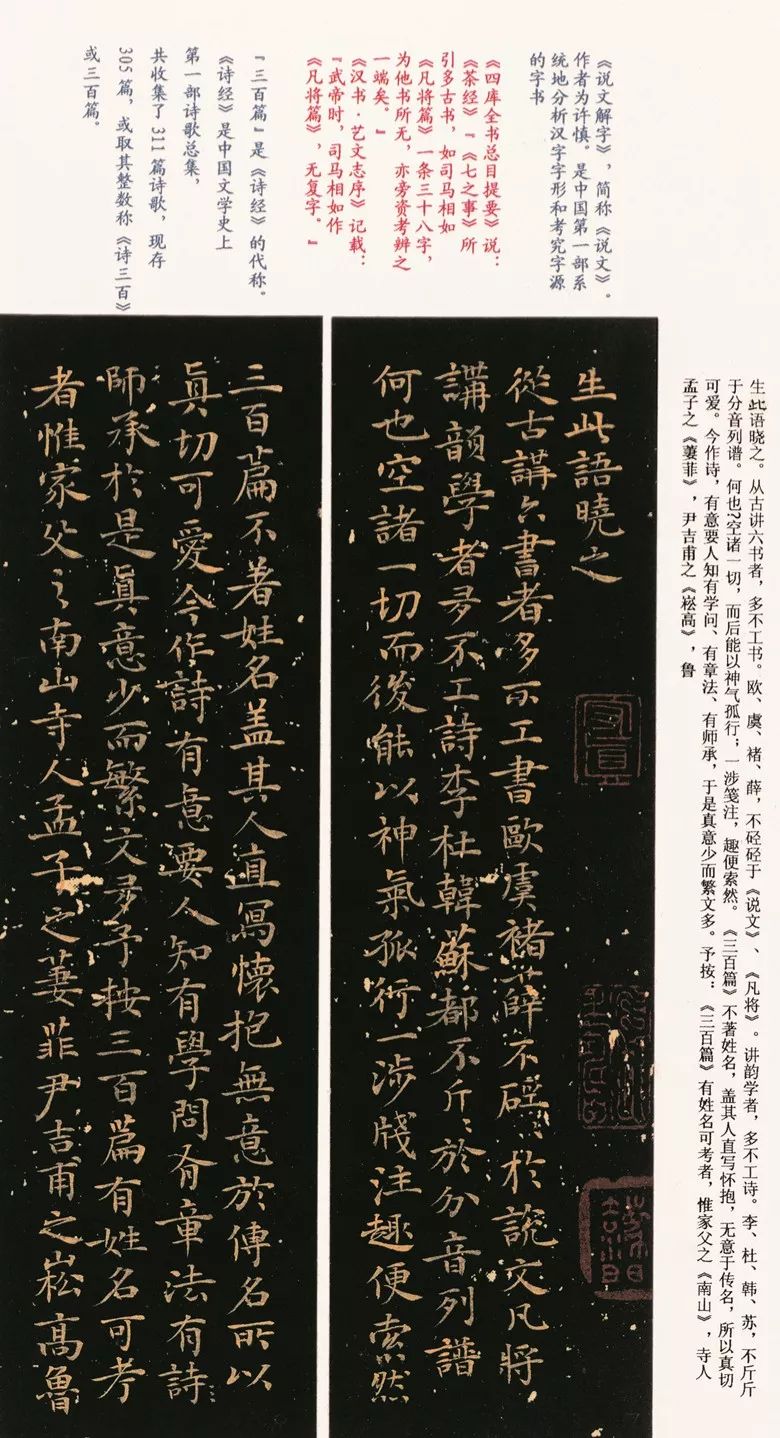 《说文解字》，简称《说文》。
作者为许慎。是中国第一部系
统地分析汉字字形和考究字源
的字书
《四库全书总目提要》说：
《茶经》『《七之事》所
引多古书，如司马相如
《凡将篇》一条三十八字，
为他书所无，亦旁资考辨之
一端矣。』
《汉书·艺文志序》记载：
『武帝时，司马相如作
《凡将篇》，无复字。』
『三百篇』是《诗经》的代称。
《诗经》是中国文学史上
第一部诗歌总集，
共收集了 311 篇诗歌，现存
305 篇，或取其整数称《诗三百》
或三百篇。
生此语晓之。从古讲六书者，多不工书。欧、虞、褚、薛，不硁硁于《说文》、《凡将》。讲韵学者，多不工诗。李、杜、韩、苏，不斤斤
于分音列谱。何也?空诸一切，而后能以神气孤行；一涉笺注，趣便索然。《三百篇》不著姓名，盖其人直写怀抱，无意于传名，所以真切
可爱。今作诗，有意要人知有学问、有章法、有师承，于是真意少而繁文多。予按：《三百篇》有姓名可考者，惟家父之《南山》，寺人
孟子之《萋菲》，尹吉甫之《崧高》，鲁
生此語曉之
從古講六書者多不工書歐虞褚薛不硜〻於說文凡將
講韻學者多不工詩李杜韓蘇都不斤〻於分音列譜
何也空諸一切而後能以神氣孤行一涉牋注趣便索然
三百篇不著姓名盖其人直寫懷抱無意於傳名所以
眞切可愛今作詩有意要人知有學問有章法有詩
師承於是眞意少而繁文多予按三百篇有姓名可考
者惟家父之南山寺人孟子之萋菲尹吉甫之崧高魯